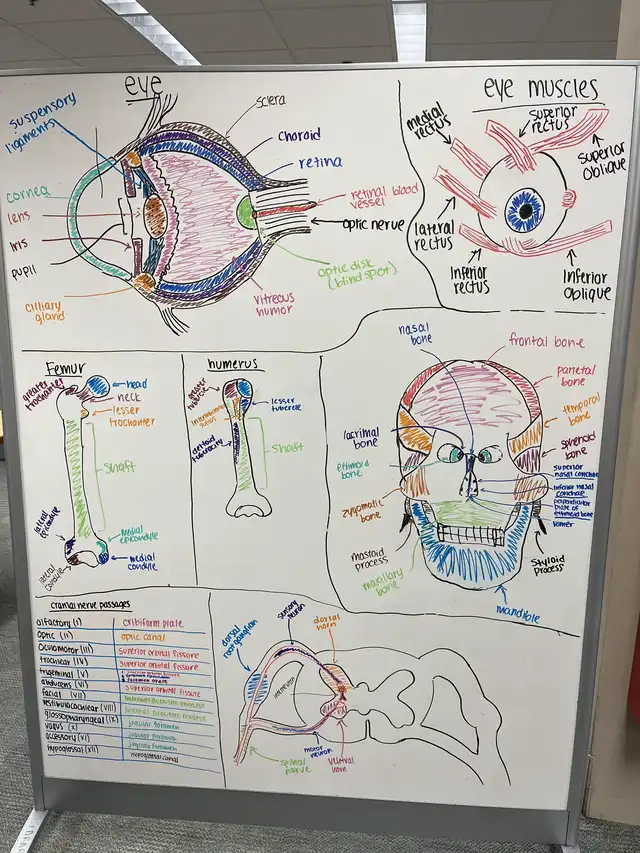 eye
suspensory
ligaments
sclera
choroid
retina
cornea
lens
iris
pupil
retinal blood
vessel
optic nerve
optic disk
(blind spot)
vitreous
humor
cilliary
gland
eye muscles
medial
rectus
superior
rectus
superior
oblique
lateral
rectus
Inferior
rectus
Inferior
oblique
Femur
greater
trochanter
head
neck
lesser
trochanter
shaft
lateral
epicondyle
medial
epicondyle
lateral
condyle
medial
condyle
humerus
greater
lesser
tubercle
shaft
nasal
bone
frontal bone
parietal
bone
temporal
bone
lacrimal
bone
sphenoid
bone
ethmoid
bone
superior
nasal conchae
inferior nasal
conchae
perpendicular
plate of
ethmoid bone
vomer
zygomatic
bone
mastoid
process
maxillary
bone
styloid
process
mandible
cranial nerve passages
olfactory (I) cribiform plate
optic (II) optic canal
oculomotor (III) superior orbital fissure
trochlear (IV) superior orbital fissure
trigeminal (V)
abducens (VI) superior orbital fissure
facial (VII) internal acoustic meatus
vestibulocochlear (VIII) internal acoustic meatus
glossopharyngeal (IX) jugular foramen
vagus (X) jugular foramen
accessory (XI) jugular foramen
hypoglossal (XII) hypoglossal canal
sensory
neuron
dorsal
horn
dorsal
root ganglion
interneuron
motor
neuron
spinal
nerve
ventral
horn